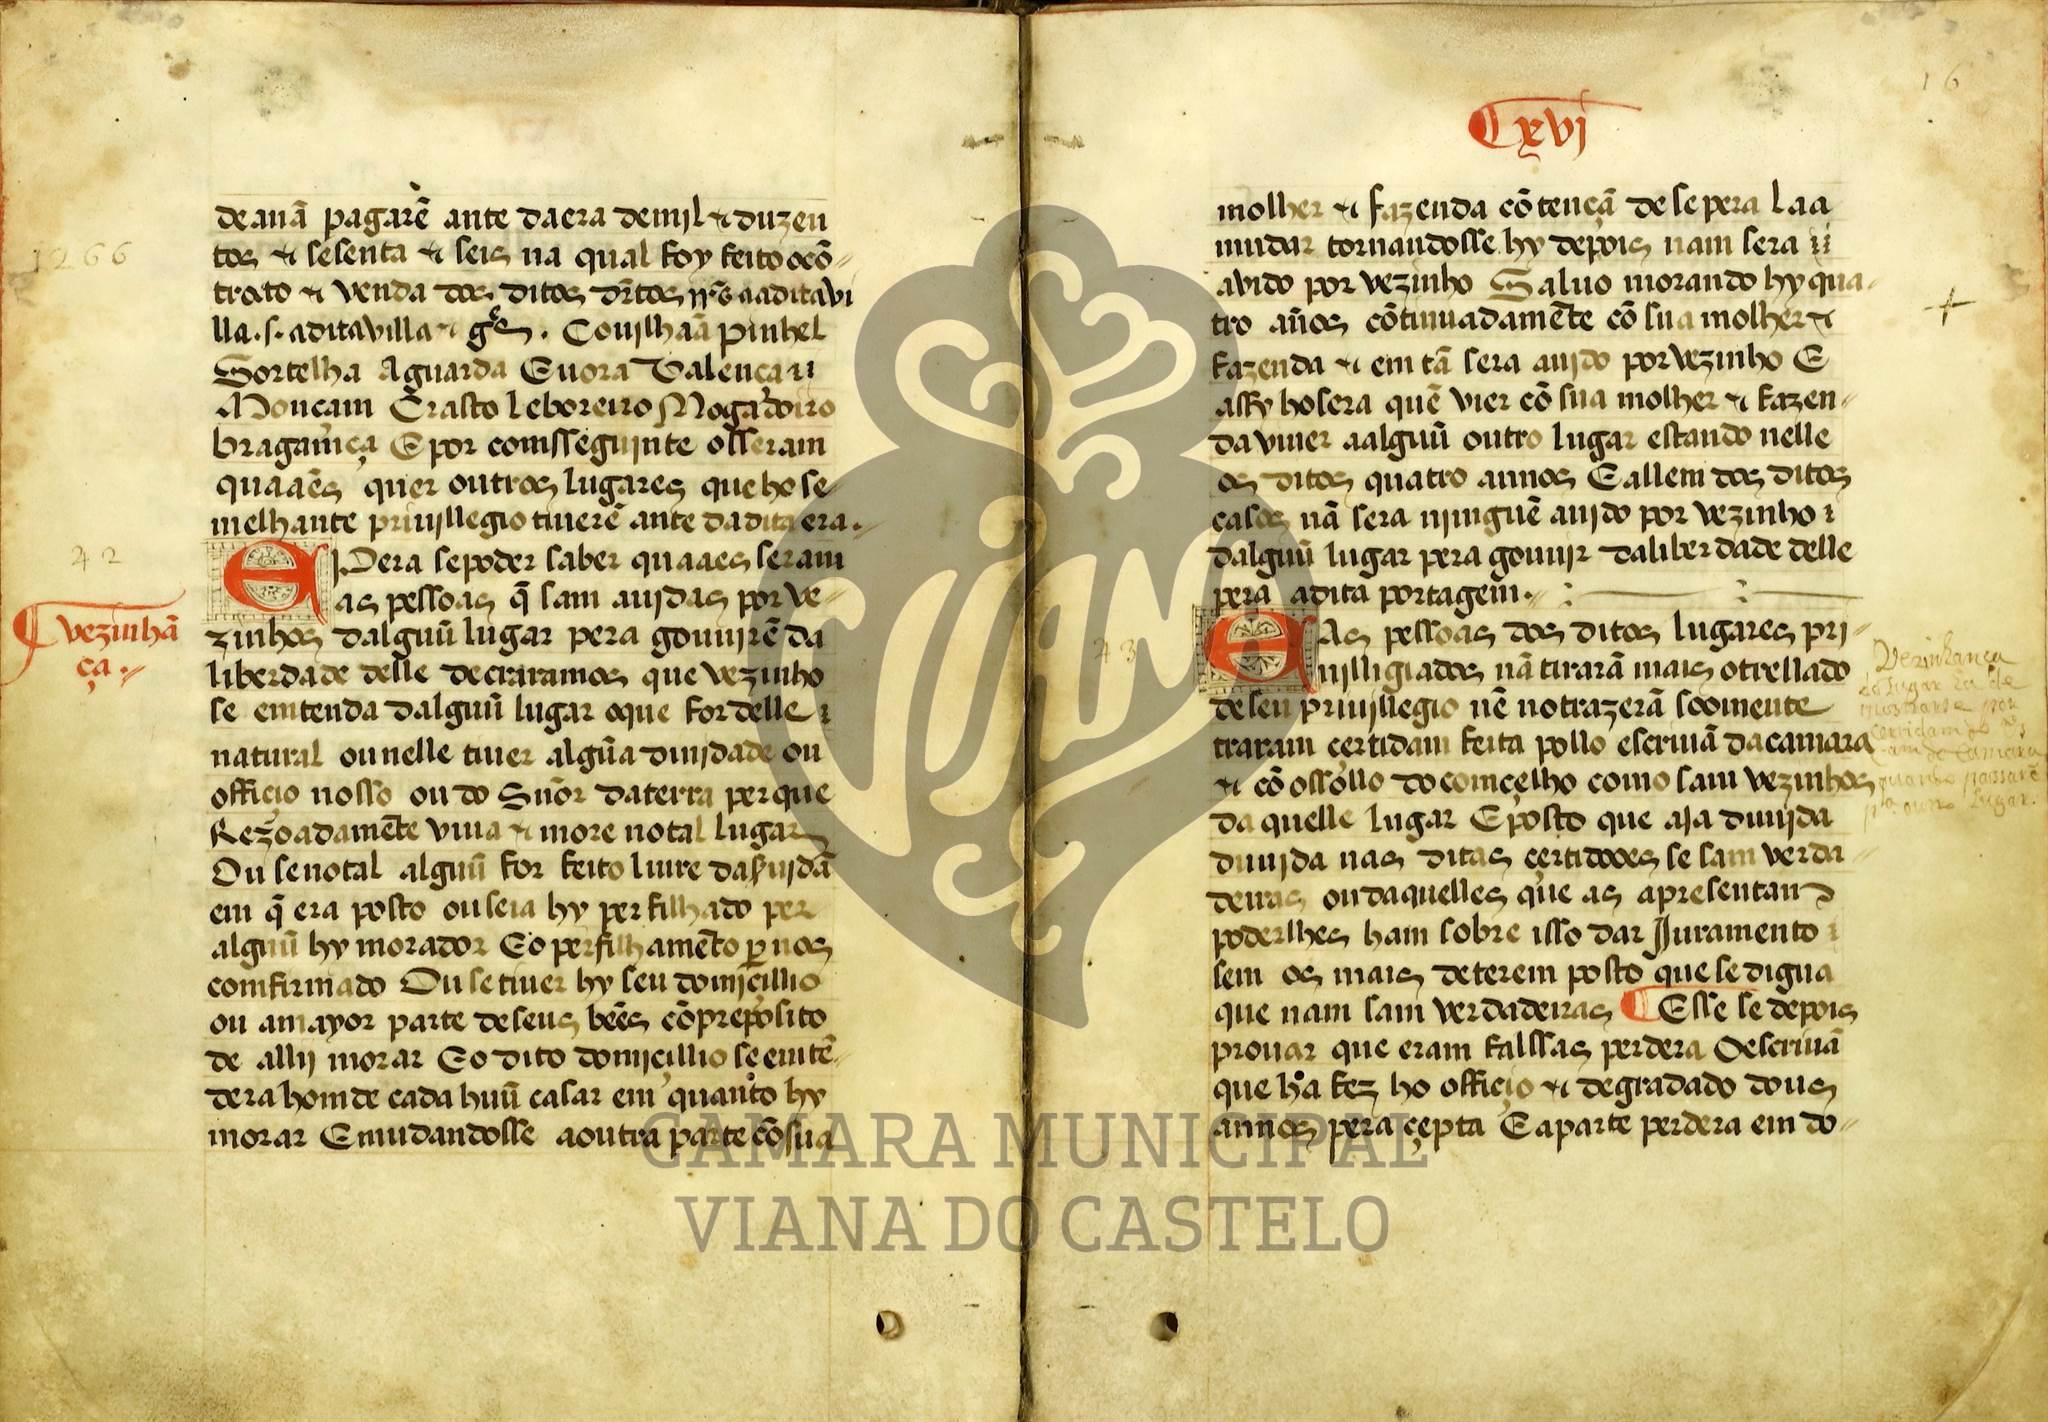 1266
de auā pagarē ante da era de mjl ⁊ duzen
tos ⁊ sesenta ⁊ seis na qual foy feito o cō-
trato ⁊ venda dos ditos drtos a a dita vi
lla .s. a dita villa ⁊ . Covjlhaã pinhel
Sortelha A guarda Euora Valença
Monçam Crasto leboreiro Mogadoiro
bragamça E por comsseguinte osseram
quaaēs quer outros lugares que ho se-
melhante priujllegio tiuerē ante da dita era.
42
vezinhā
ça.
E Pera se poder saber quaaes seram
as pessoas q̄ sam aujdas por ve-
zinhos dalguū lugar pera gouujrē da
liberdade delle decraramos que vezinho
se emtenda dalguū lugar o que for delle
natural ou nelle tiuer algūa dinjdade ou
officio nosso ou do Sn̄or da terra per que
Rezoadamēte viua ⁊ more no tal lugar
Ou se no tal alguū for feito liure da s̄uidā
em q̄ era posto ou seia hy per filhado per
alguū hy morador E o perfilhamēto ꝑ nos
comfirmado Ou se tiuer hy seu domjcillio
ou a mayor parte de seus beēs cō preposito
de allij morar E o dito domjcillio se emtē-
dera homde cada huū casar em quanto hy
morar E mudandosse a outra parte cō sua
16
xvj
molher ⁊ fazenda cō tençā de se pera laa
mudar tornandosse hy depois nam sera
avido por vezinho Saluo morando hy qua-
tro an̄os cōtinuadamēte cō sua molher ⁊
fazenda ⁊ em tā sera aujdo por vezinho E
assy ho sera quē vier cō sua molher ⁊ fazen-
da viuer a alguū outro lugar estando nelle
os ditos quatro annos E allem dos ditos
casos nā sera njnguē aujdo por vezinho
dalguū lugar pera gouujr da liberdade delle
pera a dita portagem.
43
E As pessoas dos ditos lugares pri-
uilligiados nā tirarā mais o trellado
de seu priujllegio nē no trazerā soomente
traram certidam feita pollo escriuā da camara
⁊ cō o ssollo do comcelho como sam vezinhos
da quelle lugar E posto que aja duujda
duujda nas ditas certidooes se sam verda-
deiras ou daquelles que as apresentam
poderlhes ham sobre isso dar Juramento
sem os mais deterem posto que se digua
que nam sam verdadeiras E sse se depois
prouar que eram falssas perdera o escriuā
que ha fez ho officio ⁊ degradado dous
annos pera cepta E a parte perdera em do-
Vezinhança
CAMARA MUNICIPAL
VIANA DO CASTELO